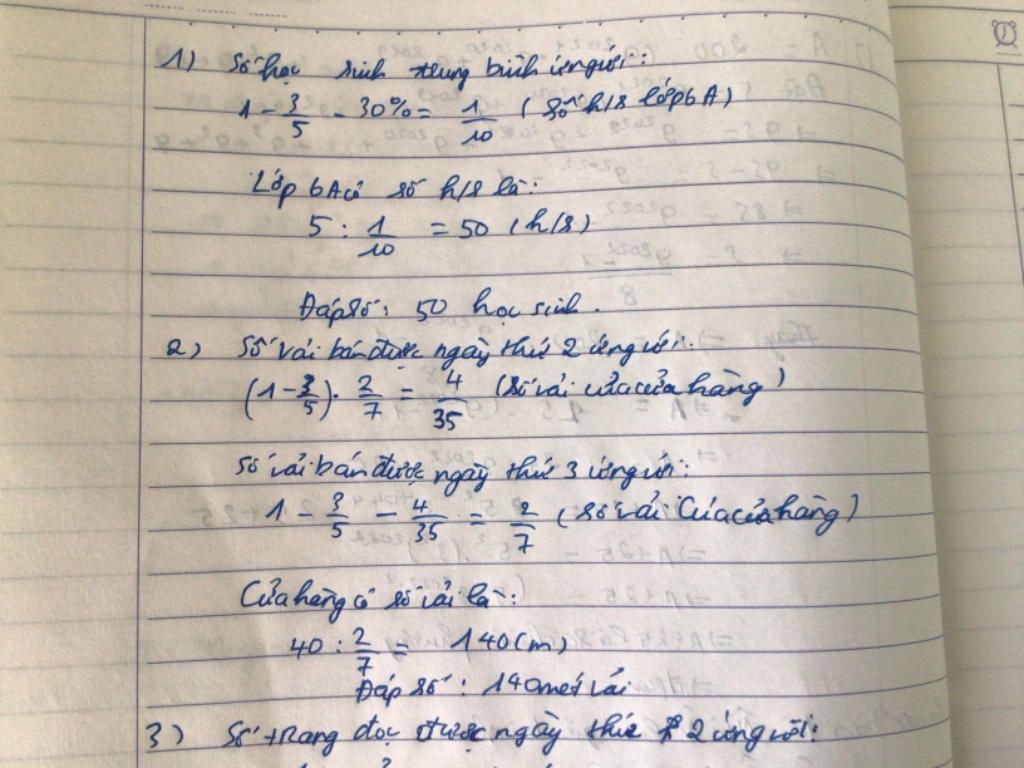 1) Số học sinh trung bình ứng với:
1 - 3/5 - 30% = 1/10 (số h/s lớp 6A)
Lớp 6A có số h/s là:
5 : 1/10 = 50 (h/s)
Đáp số: 50 học sinh.
2) Số vải bán được ngày thứ 2 ứng với:
(1 - 3/5) . 2/7 = 4/35 (số vải của cửa hàng)
Số vải bán được ngày thứ 3 ứng với:
1 - 3/5 - 4/35 = 2/7 (số vải của cửa hàng)
Cửa hàng có số vải là:
40 : 2/7 = 140 (m)
Đáp số: 140 mét vải
3) Số trang đọc được ngày thứ 2 ứng với: